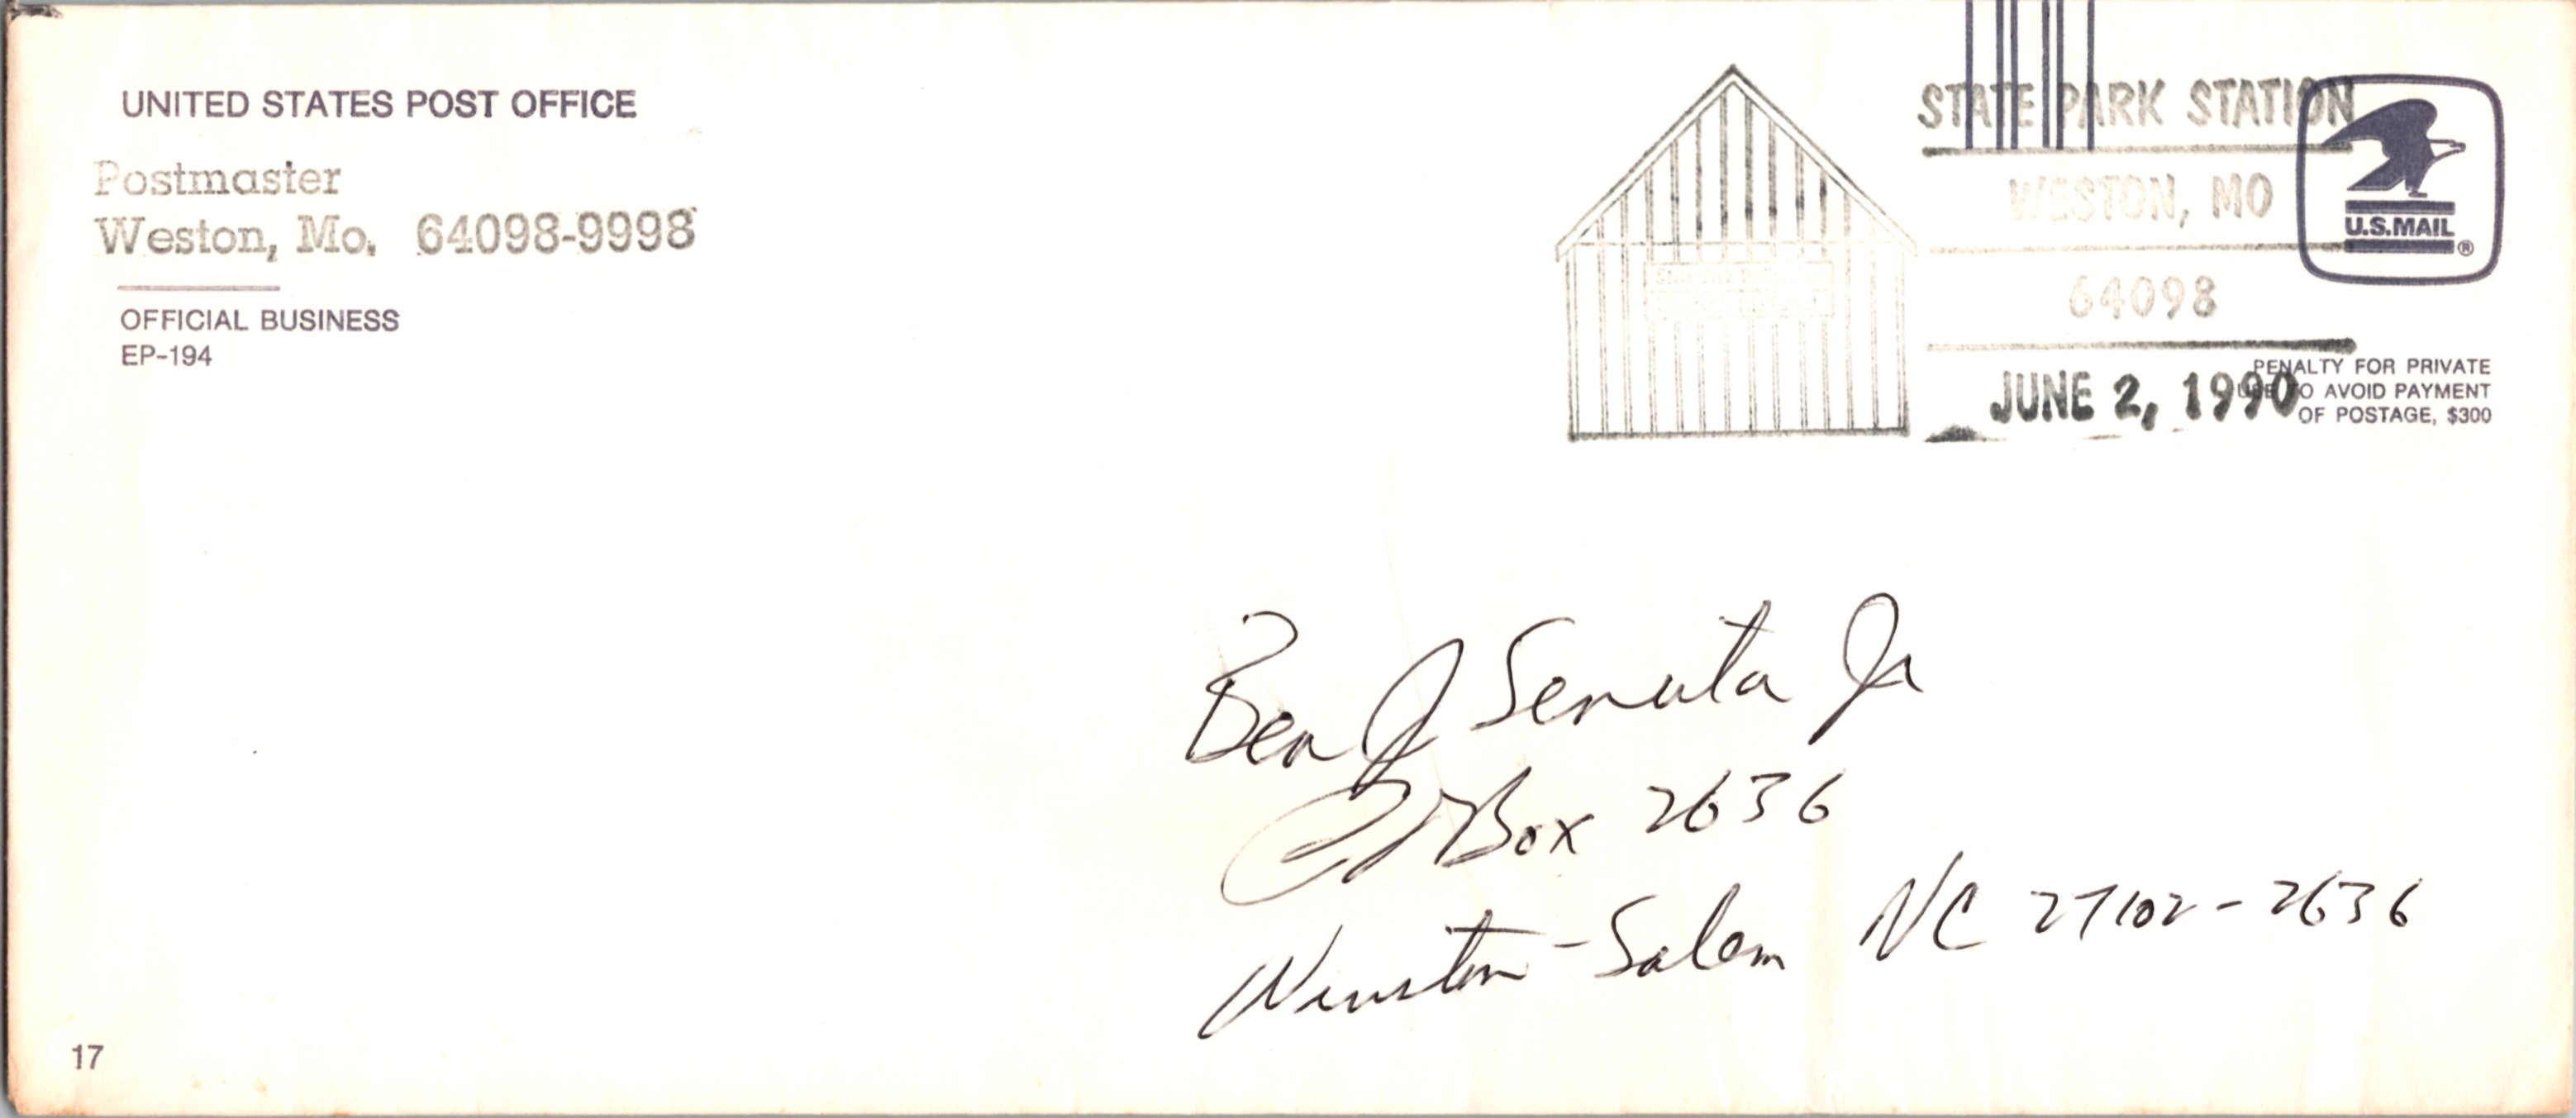 UNITED STATES POST OFFICE
Postmaster
Weston, Mo. 64098-9998
OFFICIAL BUSINESS
EP-194
STATE PARK STATION
WESTON, MO
64098
JUNE 2, 1990
U.S.MAIL ®
PENALTY FOR PRIVATE
USE TO AVOID PAYMENT
OF POSTAGE, $300
Ben J Senuta Jr
Box 2636
Winston-Salem NC 27102-2636
17